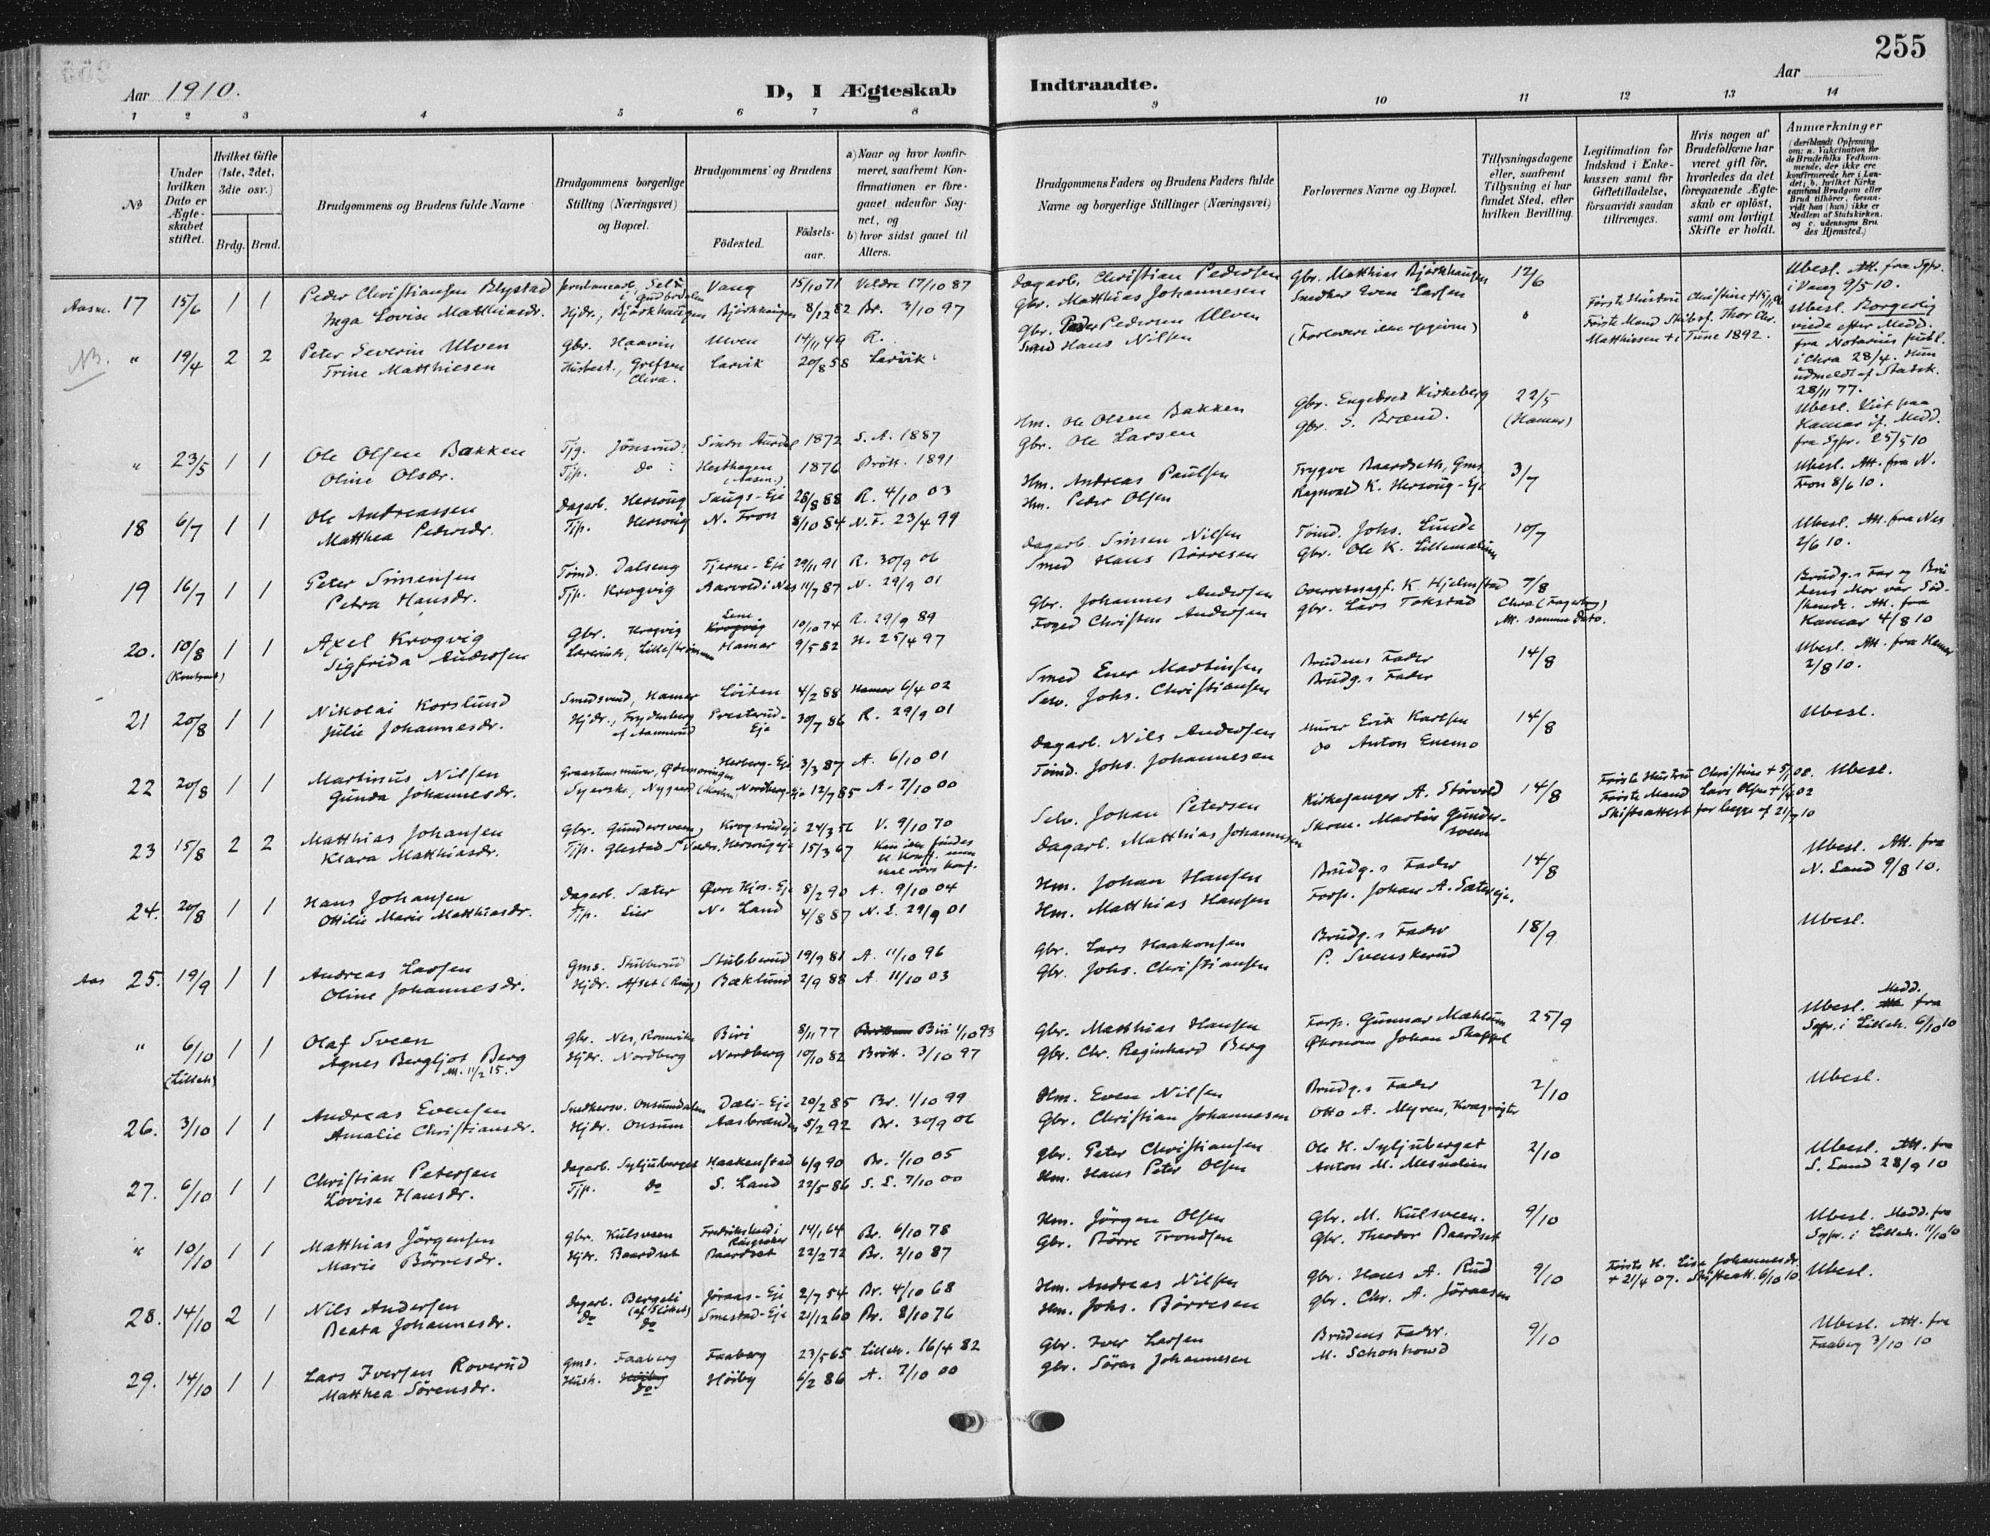 255
Aar 1910.
D, I Ægteskab
Indtraadte.
Aar
1 2 3 4 5 6 7 8 9 10 11 12 13 14
No
Under hvilken Dato er Ægteskabet stiftet.
Hvilket Gifte (1ste, 2det, 3die osv.)
Brdg. Brud.
Brudgommens og Brudens fulde Navne
Brudgommens borgerlige Stilling (Næringsvei) og Bopæl.
Brudgommens og Brudens
Fødested.
Fødselsaar.
a) Naar og hvor konfirmeret, saafremt Konfirmationen er foregaaet udenfor Sognet, og
b) hvor sidst gaaet til Alters.
Brudgommens Faders og Brudens Faders fulde Navne og borgerlige Stillinger (Næringsvei)
Forlovernes Navne og Bopæl.
Tillysningsdagene eller, saafremt Tillysning ei har fundet Sted, efter hvilken Bevilling.
Legitimation for Indskud i Enkekassen samt for Giftetilladelse, forsaavidt saadan tiltrænges.
Hvis nogen af Brudefolkene har været gift før, hvorledes da det foregaaende Ægteskab er opløst, samt om lovligt Skifte er holdt.
Anmærkninger
(deriblandt Oplysning om: a. Vakcination for de Brudefolks Vedkommende, der ikke ere konfirmerede her i Landet; b. hvilket Kirkesamfund Brudgom eller Brud tilhører, forsaavidt han (hun) ikke er Medlem af Statskirken, og c. udensogns Brudes Hjemsted.)
17 15/6 1 1 Peder Christiansen Blystad
Vang 15/10 71 Veldre 17/10 87
Dagarb. Christian Pedersen Gbr. Matthias Bjørkhaugen 12/6 Ubesl. Att. fra Sgpr. i Vang 9/5 10.
Inga Lovise Matthiasdr. Hjdr., Bjørkhaugen Bjørkhaugen 8/12 82 Br. 3/10 97
Gbr. Matthias Johannesen Snedker Iven Larsen
NB. " 19/4 2 2 Peter Severin Ulven Gbr. Haavin Ulven 14/11 49 R.
Gbr. Peder Pedersen Ulven (Forlovere ikke opgivne) "
Første Mand Skibsf. Thor Chr. Matthiesen + i Tune 1892.
Ubesl. Borgerlig viede efter Medd. fra Notarius publ. i Chra 28/4. Hun udmeldt af Statsk. 28/11 77.
Trine Matthiesen Husbest., Grefsen Chra. Larvik 20/8 58 Larvik
Smed Hans Nilsen
" 23/5 1 1 Ole Olsen Bakken Tjg. Jønsrud Søndre Aurdal 1872 S. A. 1887
Hm. Ole Olsen Bakken Gbr. Engebret Kirkeberg 22/5 (Hamar)
Oline Olsdr. Tjp. do Hesthagen (Aasen) 1876 Brøtt. 1891
Gbr. Ole Larsen Gbr. S. Brænd.
Ubesl. Viet paa Hamar if. Medd. fra Sgpr. 25/5 10
18 6/7 1 1 Ole Andreassen Dagarb. Hersoug Saugs-Eje 28/8 88 R. 4/10 03
Hm. Andreas Paulsen Trygve Baardseth, Gms. 3/7 Ubesl. Att. fra N. Fron 8/6 10.
Matthea Pedersdr. Tjp. Hersoug N. Fron 8/10 84 N. F. 23/4 99
Hm. Peder Olsen Ragnvald K. Hersoug-Eje
19 16/7 1 1 Peter Simensen Tømd. Dalseng Tjerne-Eje 29/11 91 R. 30/9 06
Dagarb. Simen Nilsen Tømd. Johs. Lunde 10/7 Ubesl. Att. fra Nes 2/6 10.
Petra Hansdr. Tjp. Krogvig Aarvold i Nes 11/7 87 N. 29/9 01
Smed Hans Børresen Gbr. Ole K. Lillemælum
20. 10/8 (Kontrast) 1 1 Axel Krogvig Gbr. Krogvig Lem 19/10 74 R. 29/9 89
Gbr. Johannes Andersen Overretssagf. K. Hjelmstad 7/8
Sigfrida Andersen Lærerinde, Lillestrømmen Hamar 9/5 82 H. 25/4 97
Foged Christen Andersen Gbr. Lars Tokstad
Brudg.s Far og Brudens Mor var Sødskende. Att. fra Hamar 4/8 10
21 20/8 1 1 Nikolai Korslund Smedsvend, Hamar Løiten 4/2 88 Hamar 6/4 02
Smed Ener Martinsen Brudens Fader 14/8 Ubesl. Att. fra Hamar 2/8 10.
Julie Johannesdr. Hjdr., Frydenberg af Aannerud Prestrud-Eje 30/7 86 R. 29/9 01
Selv. Johs. Christiansen Brudg.s Fader
22 20/8 1 1 Martinus Nilsen Herberg-Eje 3/3 87 A. 6/10 01
Dagarb. Nils Andersen Murer Erik Karlsen 14/8 Ubesl.
Gunda Johannesdr. Syerske, Nygaard Nordberg-Eje 12/7 85 A. 7/10 00
Tømd. Johs. Johannesen do Anton Enemo
23 15/8 2 2 Matthias Johansen Gbr. Gundersveen Krogsrudeje 24/3 56 V. 9/10 70
Selv. Johan Petersen Kirkesanger A. Størvold 14/8 Første Hustru Christine + 5/1 08. Ubesl.
Klara Matthiasdr. Tjp. Glestad Hersougeje 15/3 67
Dagarb. Matthias Johannesen Skom. Martin Gundersveen
Første Mand Lars Olsen + 1/4 02
Skifteattest for begge af 21/7 10
24. 20/8 1 1 Hans Johansen Dagarb. Sæter Øvre Kjos-Eje 8/2 90 A. 9/10 04
Hm. Johan Hansen Brudg.s Fader 14/8 Ubesl. Att. fra N. Land 9/8 10.
Ottilie Marie Matthiasdr. Tjp. Lier N. Land 4/8 87 N. L. 29/9 01
Hm. Matthias Hansen Forp. Johan A. Sætereje.
Aas 25. 19/9 1 1 Andreas Larsen Gms. Stubberud Stubberud 19/9 81 A. 11/10 96
Gbr. Lars Haakonsen Brudg.s Fader 18/9 Ubesl.
Oline Johannesdr. Hjdr. Afset (Ring) Bæklund 2/9 88 A. 11/10 03
Gbr. Johs. Christiansen P. Svenskerud
" 6/10 (Lilleh) 1 1 Olaf Sveen Gbr. Nes, Romerike Biri 8/11 77 Biri 1/10 93
Gbr. Matthias Hansen Forp. Gunnar Mælum 25/9 Ubesl. Medd. fra Sgpr. i Lilleh. 6/10 10
Agnes Bergljot Berg Hjdr. Nordberg Nordberg 10/10 82 Brøtt. 3/10 97
Gbr. Chr. Reginhard Berg Økonom Johan Skappel
26. 3/10 1 1 Andreas Evensen Snedkersv. Onsumdalen Dæli-Eje 20/2 85 Br. 1/10 99
Hm. Even Nilsen Brudg.s Fader 2/10 Ubesl.
Amalie Christiansdr. Hjdr. Onsum Aasbranden 5/2 92 Br. 30/9 06
Gbr. Christian Johannesen Otto A. Myren, Kvægrøgter
27. 6/10 1 1 Christian Petersen Dagarb. Syljuberget Haakenstad 6/9 90 Br. 1/10 05
Gbr. Peter Christiansen Ole H. Syljuberget 2/10 Ubesl. Att. fra S. Land 28/9 10
Lovise Hansdr. Tjp. do S. Land 22/5 86 S. L. 7/10 00
Hm. Hans Peter Olsen Anton M. Mesnalien
" 10/10 1 1 Matthias Jørgensen Gbr. Kulsveen 14/1 64 Br. 6/10 78
Hm. Jørgen Olsen Gbr. M. Kulsveen. 9/10 Ubesl. Medd. fra Sgpr. i Lilleh. 11/10 10
Marie Børresdr. Hjdr. Baardset Baardset 22/2 72 Br. 2/10 87
Gbr. Børre Trondsen Gbr. Theodor Baardset
28. 14/10 2 1 Nils Andersen Dagarb. Bergeli Jøraas-Eje 2/7 54 Br. 4/10 68
Hm. Andreas Nilsen Gbr. Hans A. Rud 9/10 Første H. Lise Johannesdr. + 21/4 07. Skifteatt. 6/10 10 Ubesl.
Beata Johannesdr. do do Smestad-Eje 21/12 60 Br. 8/10 76
Hm. Johs. Børresen Gbr. Chr. A. Jøraasen
29. 14/10 1 1 Lars Iversen Roverud Gms. Faaberg Faaberg 23/5 65 Lilleh. 16/4 82
Gbr. Iver Larsen Brudens Fader. 9/10 Ubesl. Att. fra Faaberg 3/10 10
Matthea Sørensdr. Hush. do. Høiby 6/2 86 A. 7/10 00
Gbr. Søren Johannesen M. Schonhowd